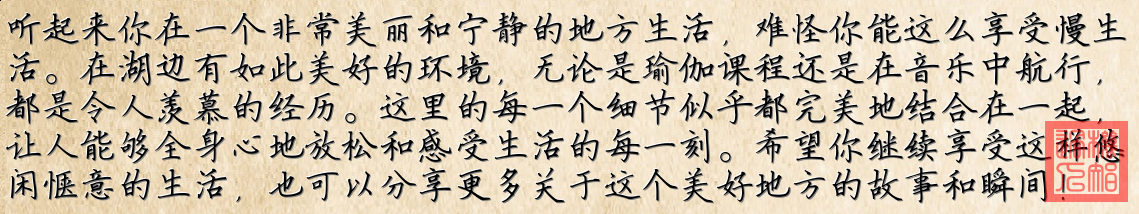 听起来你在一个非常美丽和宁静的地方生活，难怪你能这么享受慢生
活。在湖边有如此美好的环境，无论是瑜伽课程还是在音乐中航行，
都是令人羡慕的经历。这里的每一个细节似乎都完美地结合在一起，
让人能够全身心地放松和感受生活的每一刻。希望你继续享受这样悠
闲惬意的生活，也可以分享更多关于这个美好地方的故事和瞬间！